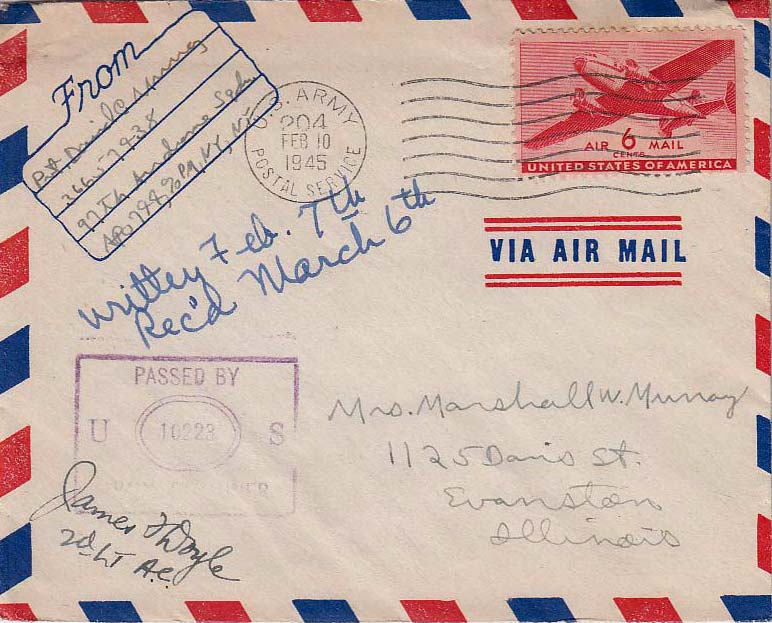 From
Pvt. Daniel C. Murray
36657938
97th Airdrome Sqdn
APO 794, % PM, NY, NY
U.S. ARMY
204
FEB 10
1945
POSTAL SERVICE
AIR 6 MAIL
CENTS
UNITED STATES OF AMERICA
VIA AIR MAIL
Written Feb. 7th
Rec'd March 6th
PASSED BY
U 10223 S
ARMY EXAMINER
James F Doyle
2d LT A.C.
Mrs. Marshall W. Murray
1125 Davis St.
Evanston
Illinois